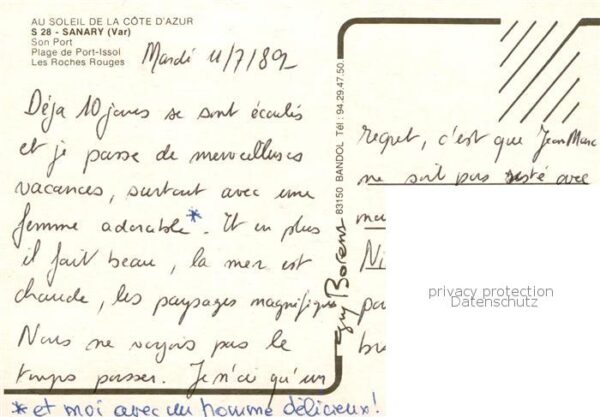 AU SOLEIL DE LA CÔTE D'AZUR
S 28 - SANARY (Var)
Son Port
Plage de Port-Issol
Les Roches Rouges
Mardi 11/7/89
Déja 10 jours se sont écoulés
et je passe de merveilleuses
vacances, surtout avec une
femme adorable*. Et en plus
il fait beau, la mer est
chaude, les paysages magnifiques
Nous ne voyons pas le
temps passer. Je n'ai qu'un
* et moi avec un homme délicieux!
Guy Borens 83150 BANDOL Tél : 94.29.47.50
regret, c'est que Jean Marc
ne soit pas resté avec
privacy protection
Datenschutz